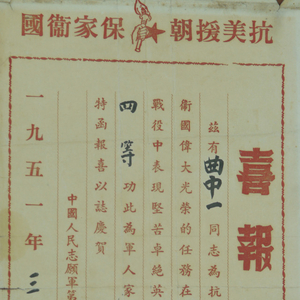 抗美援朝 保家衞國
喜報
茲有曲中一同志為抗
衞國偉大光榮的任務在
戰役中表現堅苦卓絕英
四等功此為軍人家
特函報喜以誌慶賀
中國人民志願軍第
一九五一年三